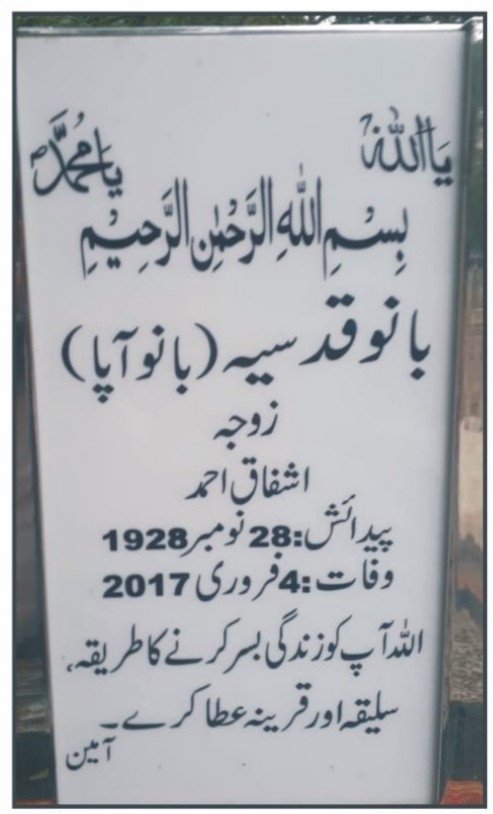 یا اللہ یا محمدؐ
بِسْمِ اللهِ الرَّحْمٰنِ الرَّحِيْمِ
بانو قدسیہ (بانو آپا)
زوجہ
اشفاق احمد
پیدائش: 28 نومبر 1928
وفات: 4 فروری 2017
اللہ آپ کو زندگی بسر کرنے کا طریقہ،
سلیقہ اور قرینہ عطا کرے۔
آمین